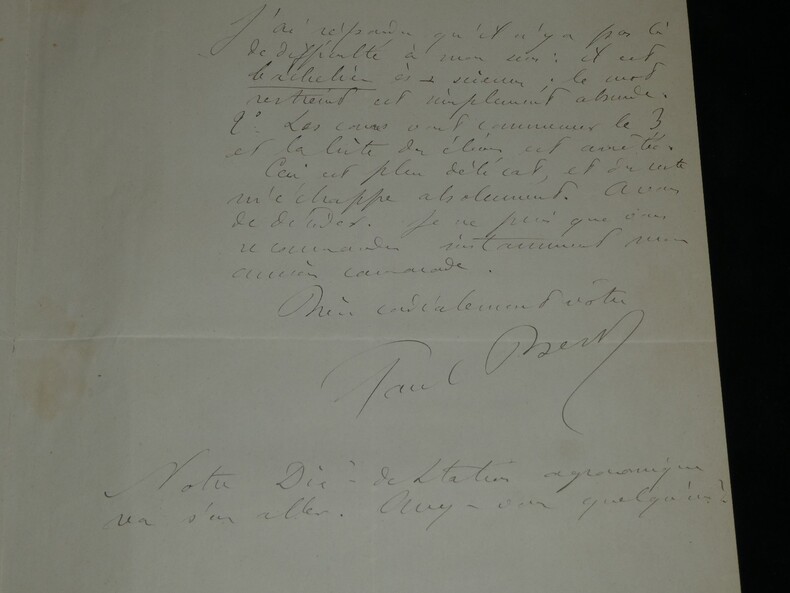 J'ai répondu qu'il n'y a pas là
de difficulté à mon sens : il est
bachelier ès sciences ; le mot
restreint est simplement absurde.
2° Les cours vont commencer le 3
et la liste des élèves est arrêtée.
Ceci est plus délicat, et du reste
m'échappe absolument. A vous
de décider. Je ne puis que vous
recommander instamment mon
ancien camarade.
Bien cordialement vôtre
Paul Bert
Notre Dir. de Station agronomique
va s'en aller. Avez-vous quelqu'un ?